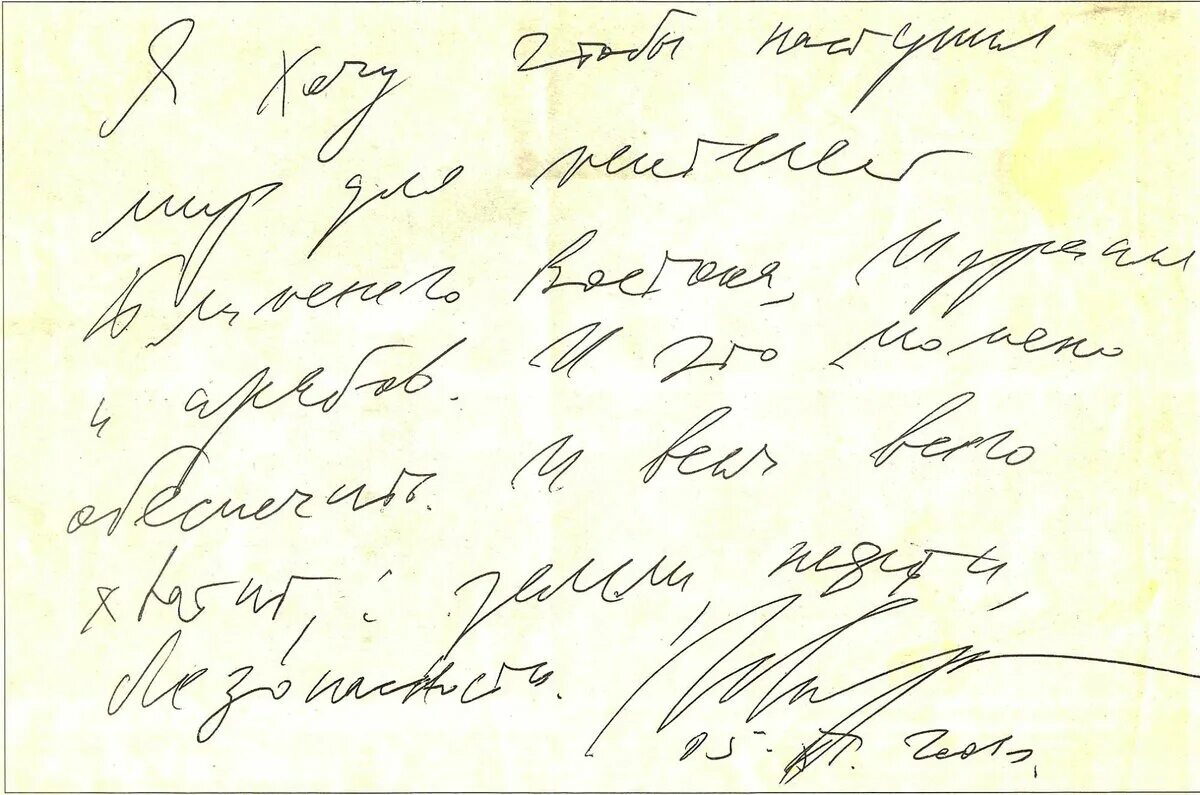 Я хочу чтобы наступил
мир для
Ближнего Востока, Израиля
и арабов. И это можно
обеспечить. И всем всего
хватит, : земли, нефти,
безопасности.
05.